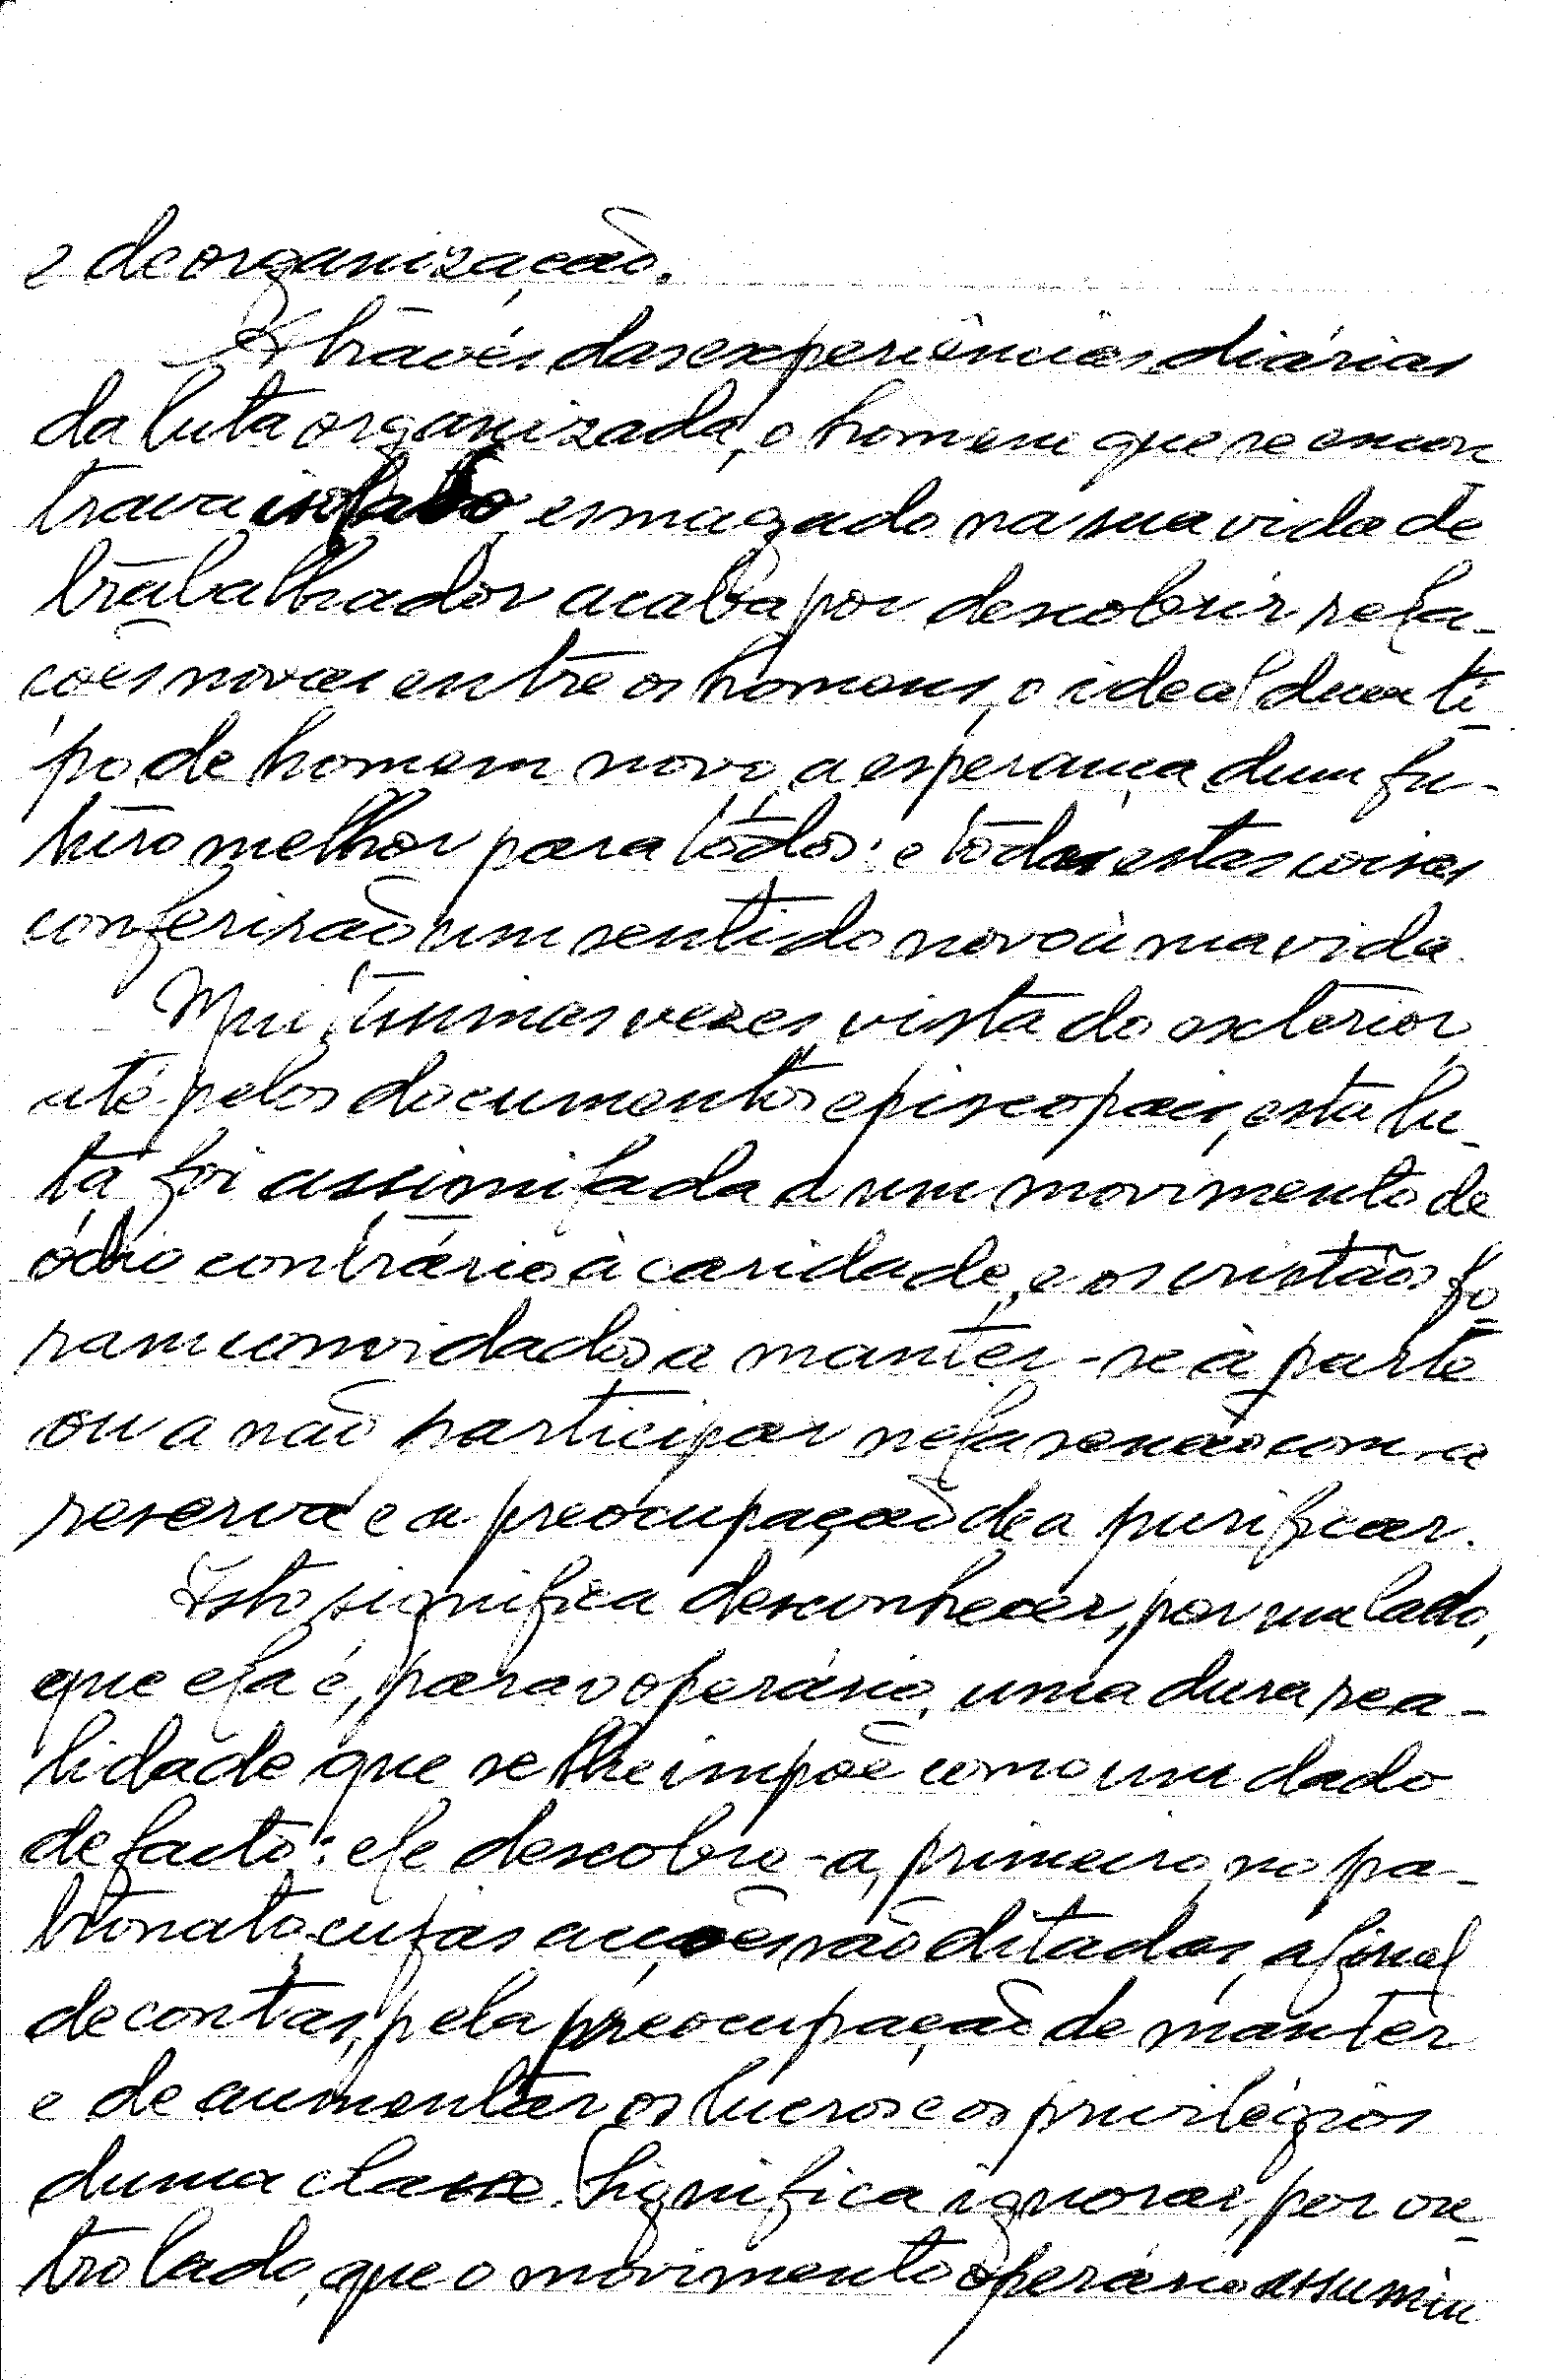 e de organização.
Através das experiências diárias
da luta organizada, o homem que se encon
trava isolado esmagado na sua vida de
trabalhador acaba por descobrir rela-
ções novas entre os homens, o ideal dum ti-
po de homem novo, a esperança dum fu-
turo melhor para todos; e todas estas coisas
conferirão um sentido novo à sua vida.
Muitíssimas vezes, vista do exterior,
até pelos documentos episcopais, esta lu-
ta foi assimilada a um movimento de
ódio contrário à caridade, e os cristãos fo-
ram convidados a manter-se à parte
ou a não participar nela senão com a
reserva e a preocupação de a purificar.
Isto significa desconhecer, por um lado,
que ela é, para o operário, uma dura rea-
lidade que se lhe impõe como um dado
de facto: ele descobre-a, primeiro, no pa-
tronato, cujas acções são ditadas, afinal
de contas, pela preocupação de manter
e de aumentar os lucros e os privilégios
duma classe. Significa ignorar, por ou-
tro lado, que o movimento operário assumiu